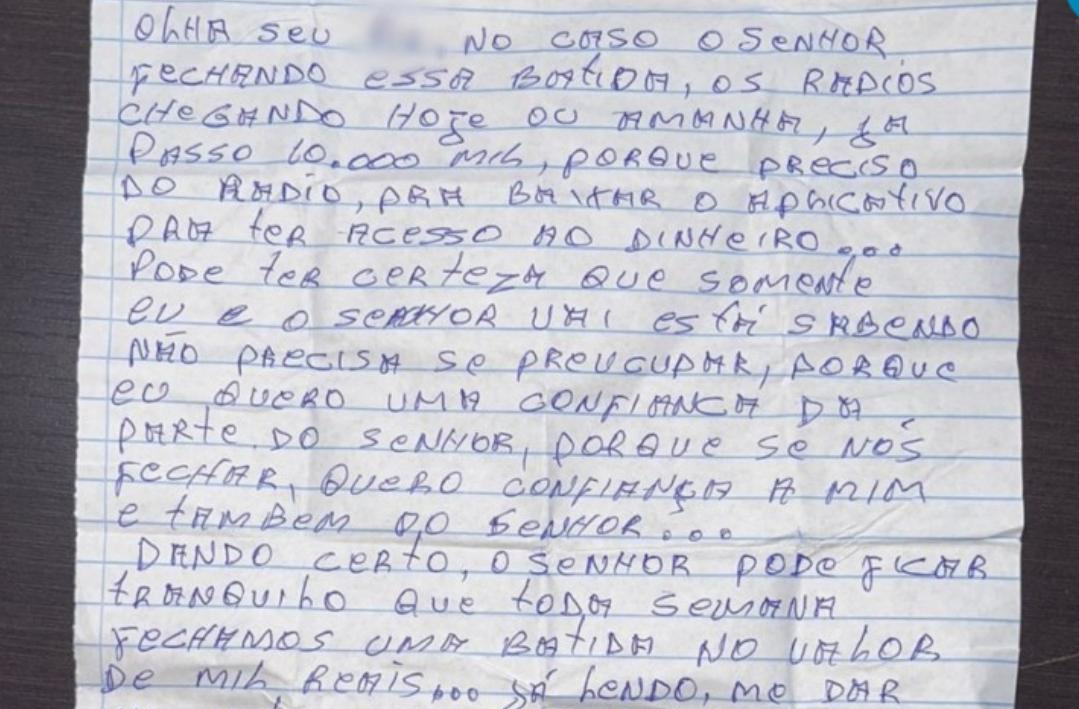 OLHA SEU NO CASO O SENHOR
FECHANDO ESSA BATIDA, OS RADIOS
CHEGANDO HOJE OU AMANHA, JA
PASSO 10.000 MIL, PORQUE PRECISO
DO RADIO, PRA BAIXAR O APLICATIVO
PRA TER ACESSO AO DINHEIRO...
PODE TER CERTEZA QUE SOMENTE
EU E O SENHOR VAI ESTÁ SABENDO
NÃO PRECISA SE PREUCUPAR, PORQUE
EU QUERO UMA CONFIANCA DA
PARTE DO SENHOR, PORQUE SE NÓS
FECHAR, QUERO CONFIANÇA A MIM
E TAMBEM AO SENHOR...
DANDO CERTO, O SENHOR PODE FICAR
TRANQUILO QUE TODA SEMANA
FECHAMOS UMA BATIDA NO VALOR
DE MIL REAIS... SÁ LENDO, ME DAR